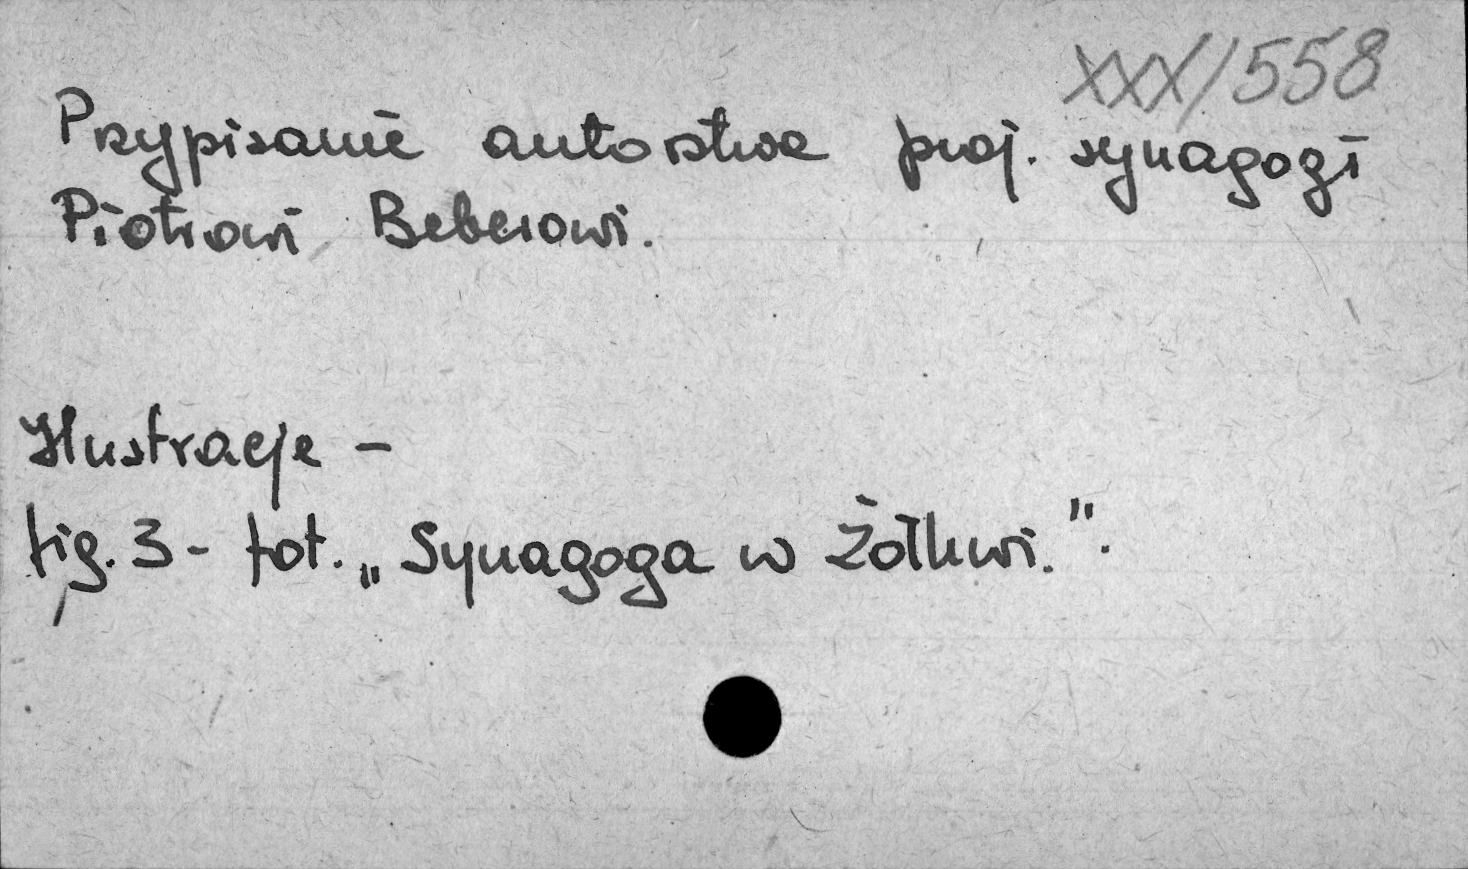 XXX/558
Przypisanie autorstwa proj. synagogi
Piotrowi Beberowi.
Ilustracje -
fig. 3 - fot. „Synagoga w Żółkwi.".